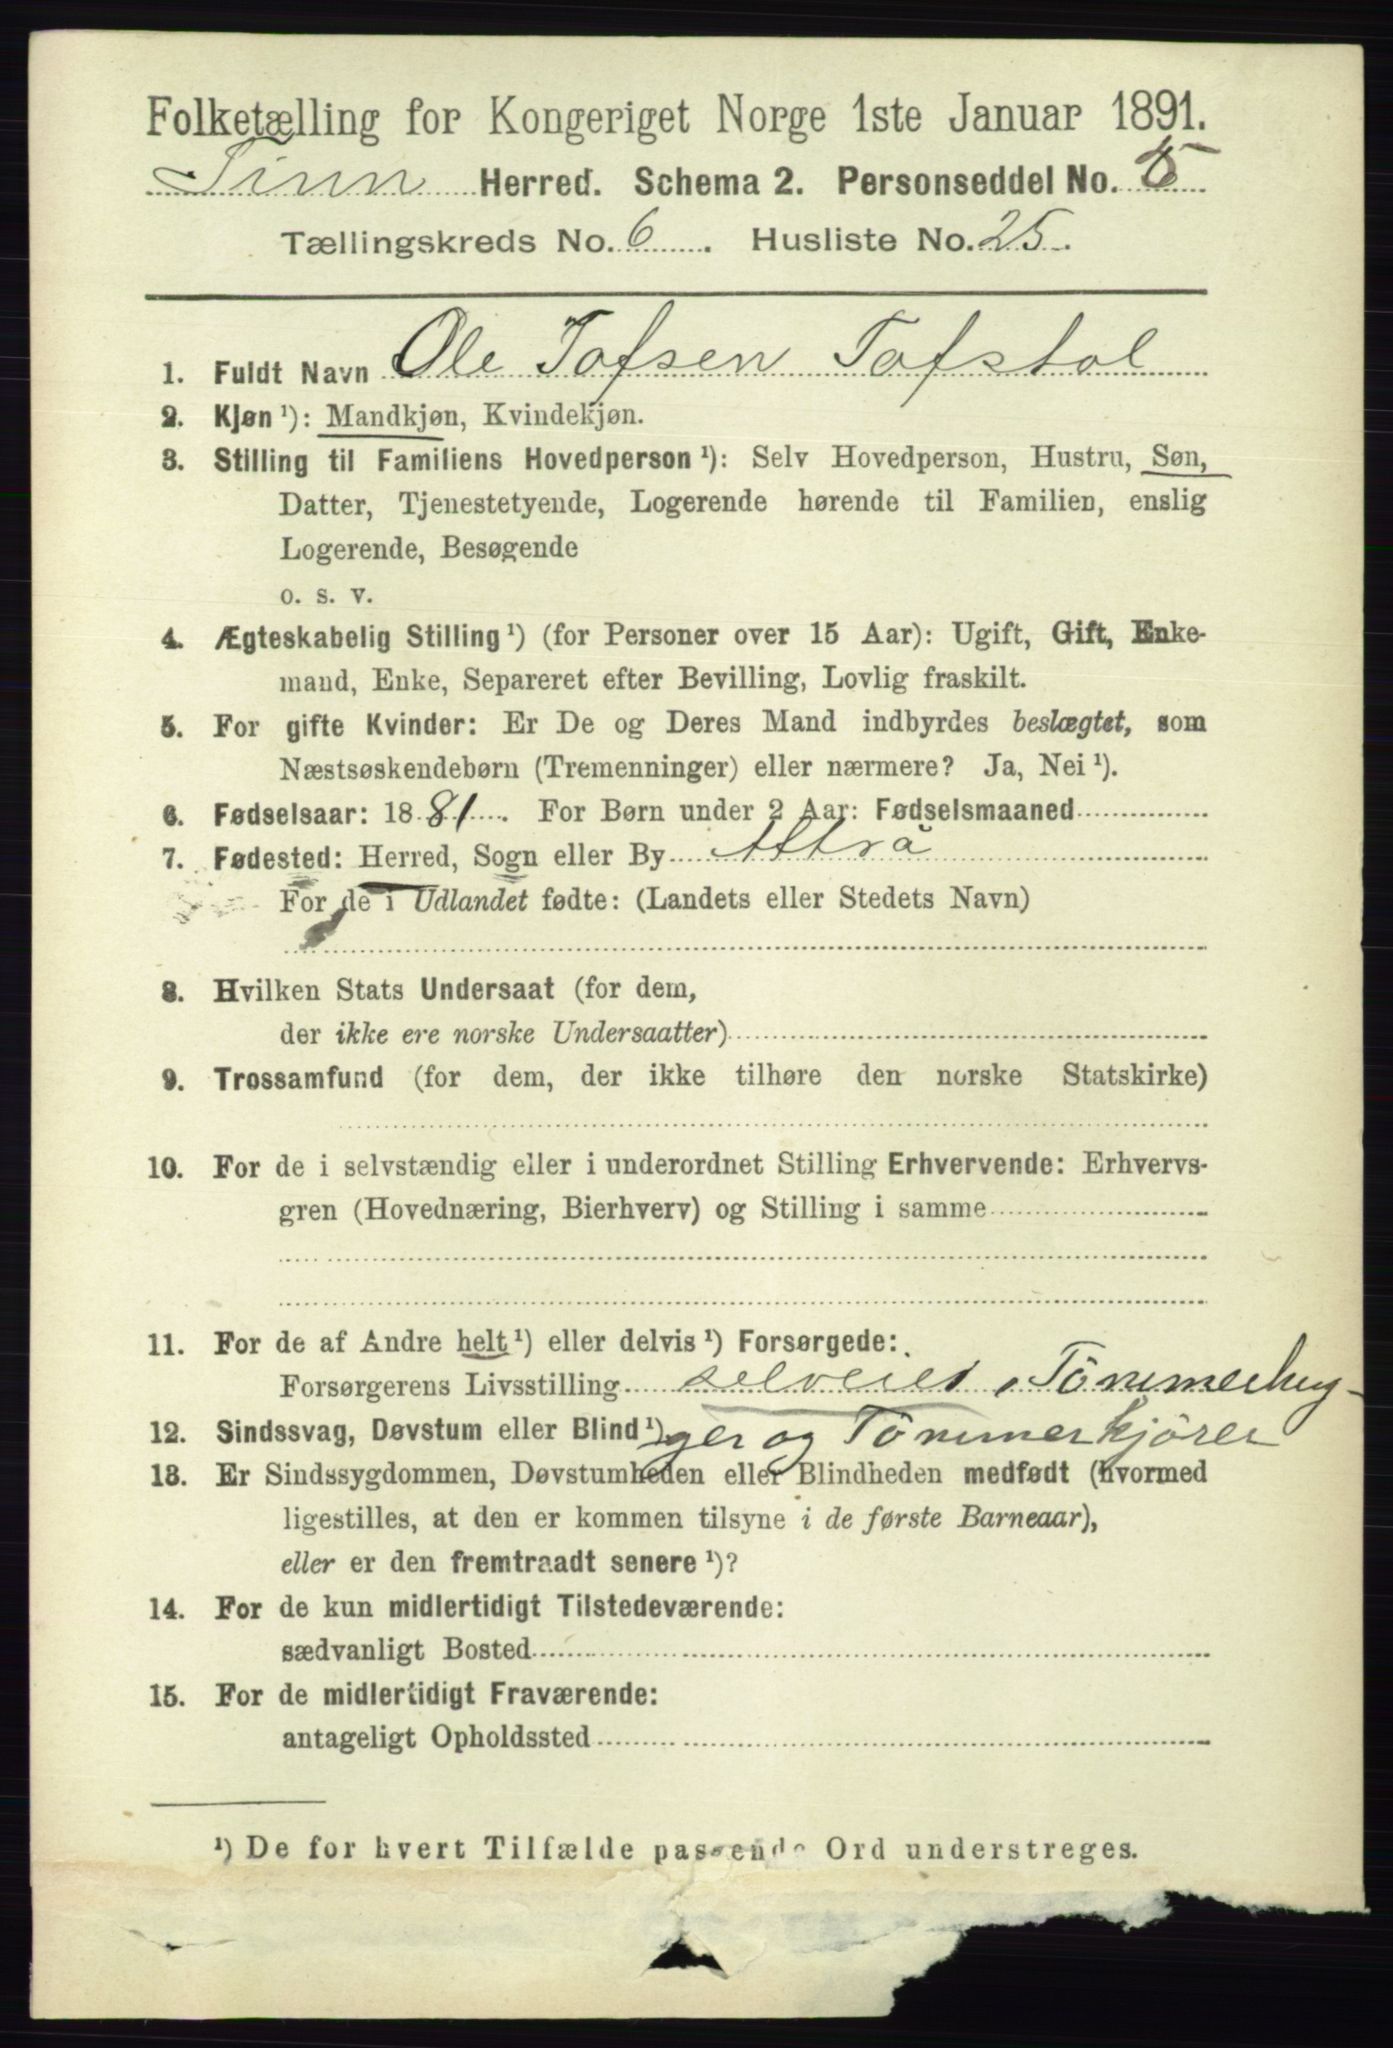 Folketælling for Kongeriget Norge 1ste Januar 1891.
Tinn Herred. Schema 2. Personseddel No. 5
Tællingskreds No. 6. Husliste No. 25.
1. Fuldt Navn Ole Tofsen Tofstol
2. Kjøn ¹): Mandkjøn, Kvindekjøn.
3. Stilling til Familiens Hovedperson ¹): Selv Hovedperson, Hustru, Søn,
Datter, Tjenestetyende, Logerende hørende til Familien, enslig
Logerende, Besøgende
o. s. v.
4. Ægteskabelig Stilling ¹) (for Personer over 15 Aar): Ugift, Gift, Enke-
mand, Enke, Separeret efter Bevilling, Lovlig fraskilt.
5. For gifte Kvinder: Er De og Deres Mand indbyrdes beslægtet, som
Næstsøskendebørn (Tremenninger) eller nærmere? Ja, Nei ¹).
6. Fødselsaar: 1881. For Børn under 2 Aar: Fødselsmaaned
7. Fødested: Herred, Sogn eller By Attrå
For de i Udlandet fødte: (Landets eller Stedets Navn)
8. Hvilken Stats Undersaat (for dem,
der ikke ere norske Undersaatter)
9. Trossamfund (for dem, der ikke tilhøre den norske Statskirke)
10. For de i selvstændig eller i underordnet Stilling Erhvervende: Erhvervs-
gren (Hovednæring, Bierhverv) og Stilling i samme
11. For de af Andre helt ¹) eller delvis ¹) Forsørgede:
Forsørgerens Livsstilling selveier, Tömmerhug-
12. Sindssvag, Døvstum eller Blind ¹) ger og Tömmerkjörer
13. Er Sindssygdommen, Døvstumheden eller Blindheden medfødt (hvormed
ligestilles, at den er kommen tilsyne i de første Barneaar),
eller er den fremtraadt senere ¹)?
14. For de kun midlertidigt Tilstedeværende:
sædvanligt Bosted
15. For de midlertidigt Fraværende:
antageligt Opholdssted
¹) De for hvert Tilfælde passende Ord understreges.